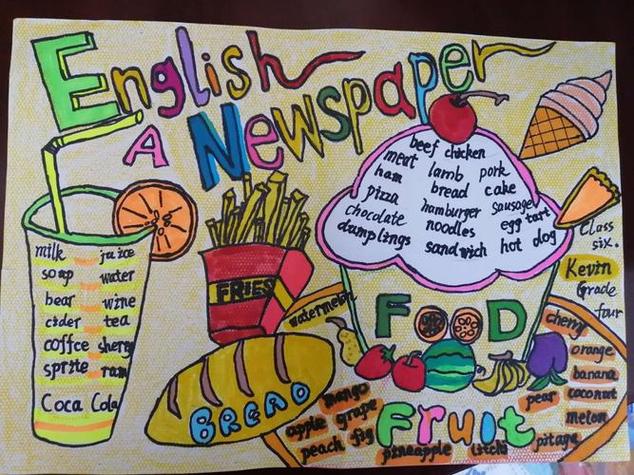 English
A Newspaper
milk juice
soap water
bear wine
cider tea
coffce sherry
sprite ram
Coca Cola
FRIES
BREAD
beef chicken
meat lamb pork
ham bread cake
pizza hamburger sausage
chocolate noodles egg tart
dumplings sandwich hot dog
Class
six.
Kevin
Grade
four
FOOD
watermelon
cherry
orange
banana
coconut
pear
melon
pitaya
mango
apple grape
peach fig
pineapple litchi
fruit